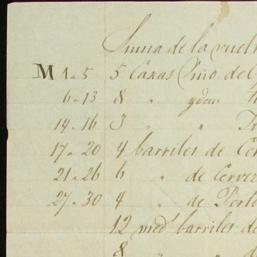 Suma de la vuelta
M 1-5 5 Caxas Vino de C
6-13 8 " 
14-16 3 " "
17-20 4 barriles de Cer
21-26 6 " de Cerve
27-30 4 " de Porte
12 med.^s barriles de
8 "